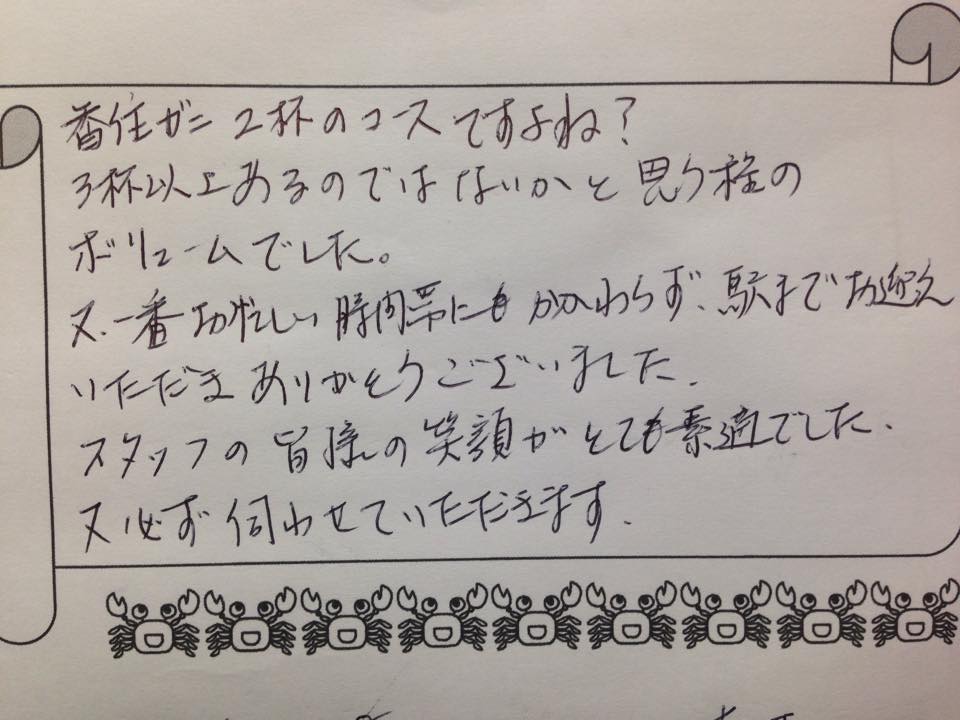 香住ガニ 2杯のコースですよね？
3杯以上あるのではないかと思う程の
ボリュームでした。
又、一番お忙しい時間帯にもかかわらず、駅までお迎え
いただきありがとうございました。
スタッフの皆様の笑顔がとても素適でした。
又必ず伺わせていただきます。